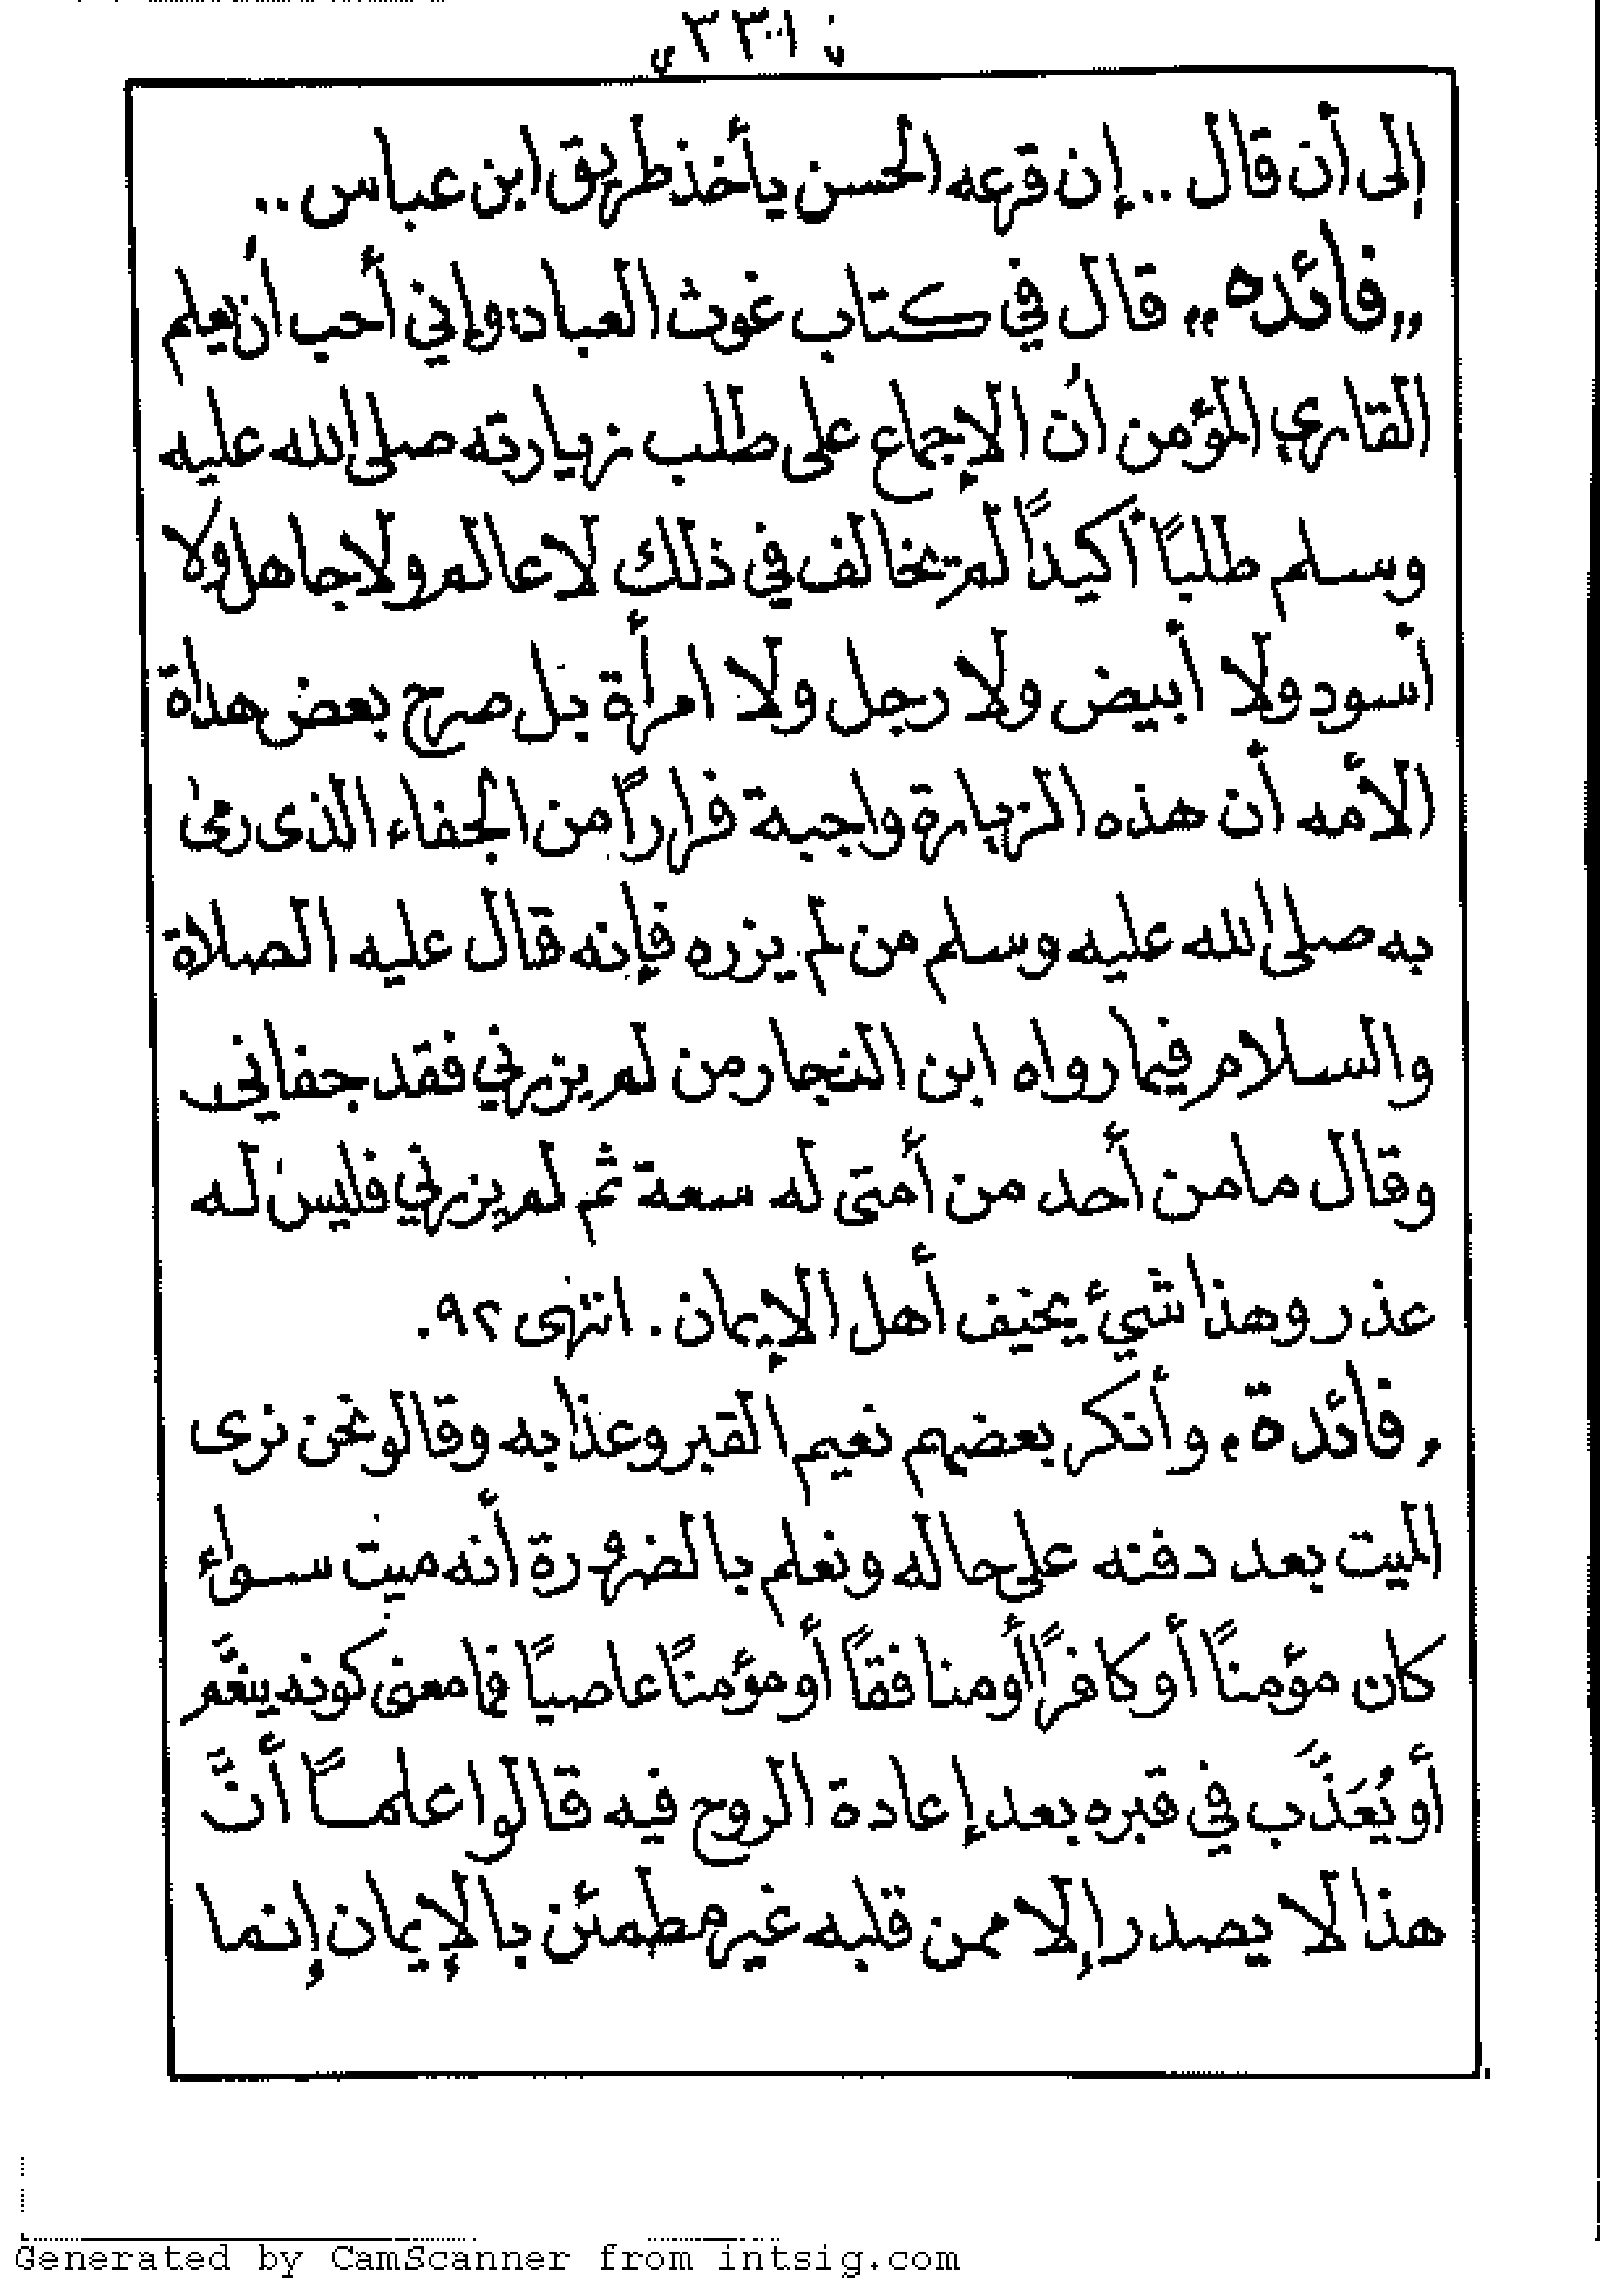 ٣٣١
إلى أن قال .. إن قرعه الحسن يأخذ طريق ابن عباس ..
,,فائده,, قال في كتاب غوث العباد، وإني أحب أن يعلم
القارئ المؤمن أن الإجماع على طلب زيارته صلى الله عليه
وسلم طلبًا أكيدًا لم يخالف في ذلك لا عالم ولا جاهل ولا
أسود ولا أبيض ولا رجل ولا امرأة بل صرح بعض هداة
الأمه أن هذه الزيارة واجبة فرارًا من الجفاء الذى رمى
به صلى الله عليه وسلم من لم يزره فإنه قال عليه الصلاة
والسلام فيما رواه ابن النجار من لم يزرني فقد جفانى
وقال ما من أحد من أمتى له سعة ثم لم يزرني فليس له
عذر وهذا شيئ يخيف أهل الإيمان . انتهى ٩٢.
,فائدة, وأنكر بعضهم نعيم القبر وعذابه وقالو نحن نرى
الميت بعد دفنه على حاله ونعلم بالضرورة أنه ميت سواء
كان مؤمنًا أو كافرًا أو منافقًا أو مؤمنًا عاصيًا فما معنى كونه ينعَّم
أو يُعَذَّب في قبره بعد إعادة الروح فيه قالوا علمًا أنَّ
هذا لا يصدر إلا ممن قلبه غير مطمئن بالإيمان إنما
Generated by CamScanner from intsig.com